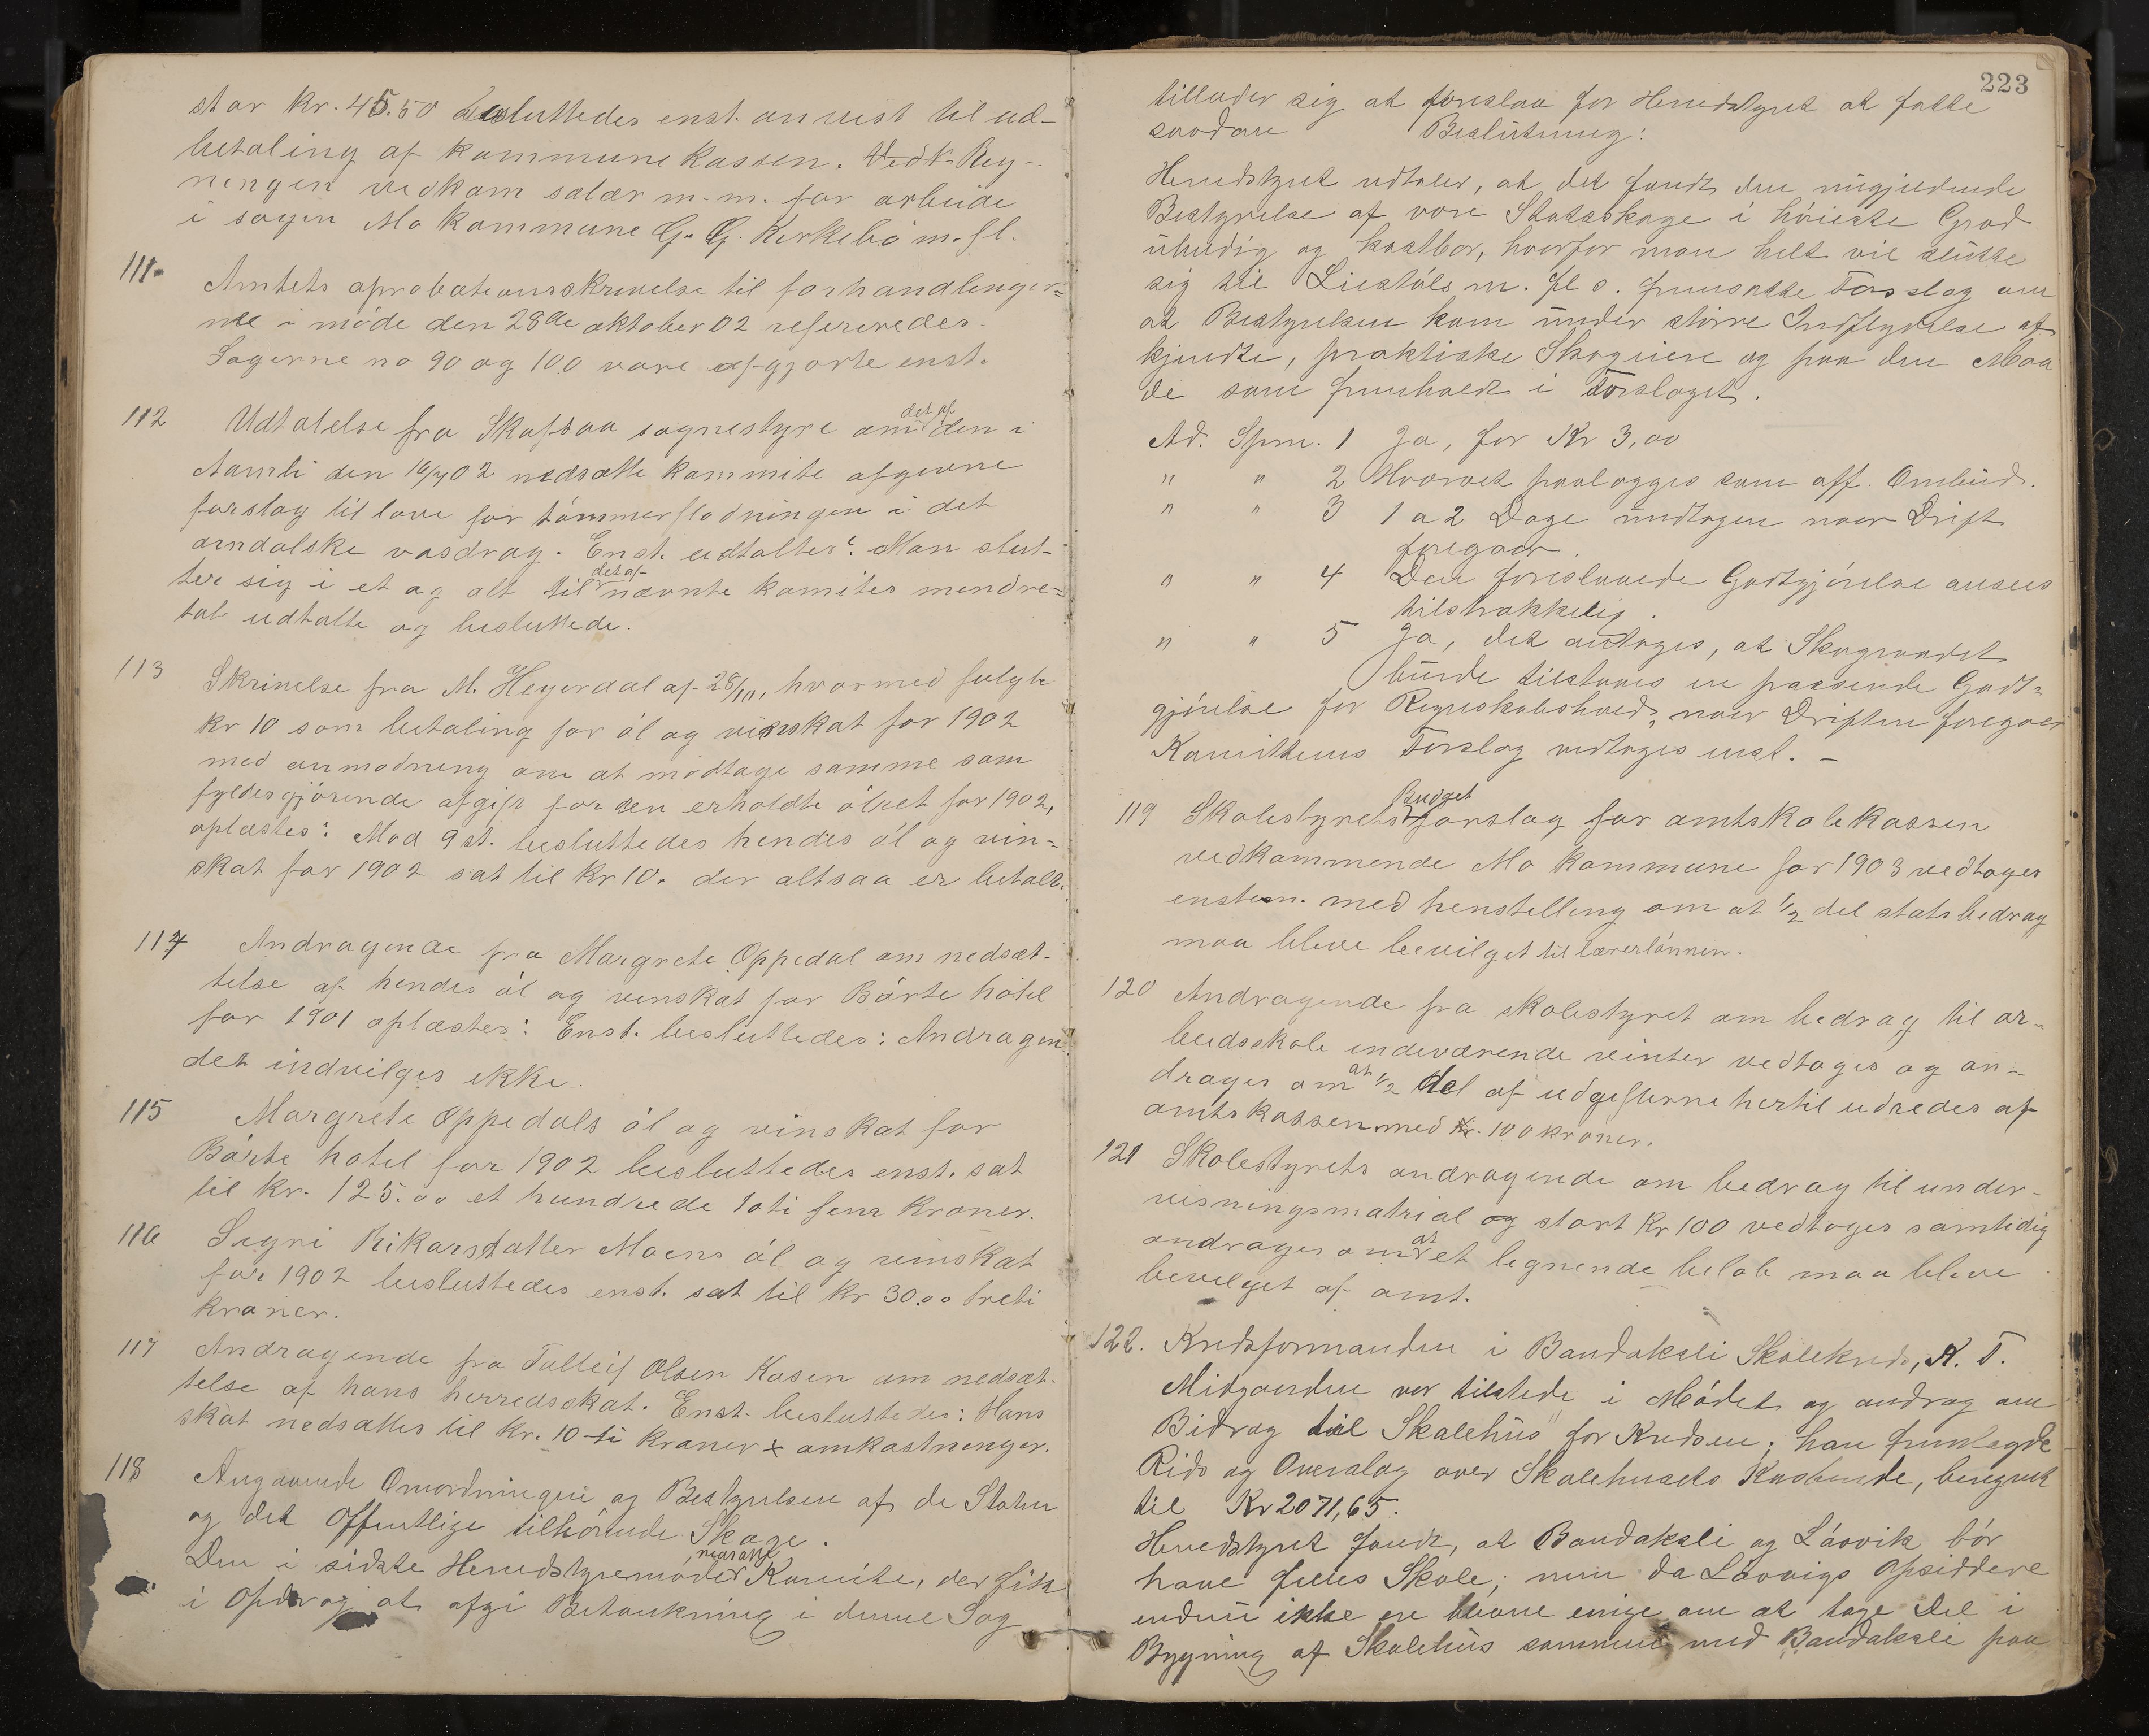 stor kr. 45.50 besluttedes enst. anvist til ud-
betaling af kommunekassen. Vedk Reg-
ningen vedkom salær m.m. for arbeide
i sagen Mo kommune G. G. Kirkebö m. fl.
111. Amtets aprobationsskrivelse til forhandlinger-
ne i möde den 28de oktober 02 refereredes.
Sagerne no 90 og 100 vare afgjorte enst.
112 Udtalelse fra Skafsaa sognestyre om det af den i
Aamli den 16/7 02 nedsatte kommite afgivne
forslag til love for tömmerflodningen i det
arndalske vasdrag. Enst. udtaltes: Man slut-
ter sig i et og alt til det af nævnte komites mindre-
tal udtalte og besluttede.
113 Skrivelse fra M. Heyerdal af 28/10, hvormed fulgte
kr 10 som betaling for öl og vinskat for 1902
med anmodning om at modtage samme som
fyldesgjörende afgift for den erholdte ölret for 1902,
oplæstes: Mod 9 st. besluttedes hendes öl og vin-
skat for 1902 sat til kr 10. der altsaa er betalt.
114 Andragende fra Margrete Oppedal om nedsæt-
telse af hendes öl og vinskat for Börte hotel
for 1901 oplæstes: Enst. besluttedes: Andragen-
det indvilges ikke.
115 Margrete Oppedals öl og vinskat for
Börte hotel for 1902 besluttedes enst. sat
til kr. 125.00 et hundrede toti fem kroner.
116 Sigri Rikarsdatter Moens öl og vinskat
for 1902 besluttedes enst. sat til kr 30.00 treti
kroner.
117 Andragende fra Talleif Olsen Kasen om nedsæt-
telse af hans herredsskat. Enst. besluttedes: Hans
skat nedsattes til kr. 10 ti kroner x omkastninger.
118 Angaaende Omordningen og Bestyrelsen af de Staten
og det Offentlige tilhörende Skoge.
Den i sidste Herredstyremöde nedsatte Komite, der fik
i Opdrag at afgi Betænkning i denne Sag
223
tillader sig at foreslaa for Herredstyret at fatte
saadan Beslutning:
Herredstyret udtaler, at det fandt den nugjældende
Bestyrelse af vore Statsskoge i höieste Grad
uheldig og kostbar, hvorfor man helt vil slutte
sig til Liestöls m. fl s. fremsatte Forslag om
at Bestyrelsen kom under större Indflydelse af
kjendte, praktiske Skogeiere og paa den Maa
de som fremholdt i Forslaget.
Ad. Spm. 1 Ja, for Kr 3,00
" " 2 Hvervet paalægges som off. Ombud.
" " 3 1 a 2 Dage undtagen naar Drift
foregaar.
" " 4 Den foreslaaede Godtgjörelse ansees
tilstrækkelig.
" " 5 Ja, det antages, at Skograadet
burde tilstaaes en passende Godt-
gjörelse for Regnskabshold, naar Driften foregaar
Komiteens Forslag vedtages enst. –
119 Skolestyrets Budget forslag for amtskolekassen
vedkommende Mo kommune for 1903 vedtages
enstem. med henstelling om at 1/2 del statsbidrag
maa blive bevilget til lærerlönnen.
120 Andragende fra skolestyret om bedrag til ar-
beidsskole indeværende vinter vedtages og an-
drages om at 1/2 del af udgifterne hertil udredes af
amtskassen med kr. 100 kroner.
121 Skolestyrets andragende om bedrag til under-
visningsmatrial og stort kr 100 vedtages samtidig
andrages om at et lignende belöb maa blive
bevilget af amt.
122. Kredsformanden i Bandaksli Skolekreds, K. T.
Midgaarden var tilstede i Mödet og androg om
Bidrag til Skolehus for Kredsen; han fremlagde
Rids og Overslag over Skolehusets Kostende, beregnet
til Kr 2071,65.
Herredstyret fandt, at Bandaksli og Laavik bör
have fælles Skole; men da Laavigs Opsiddere
endnu ikke ere blevne enige om at tage Del i
Bygning af Skolehus sammen med Bandaksli paa